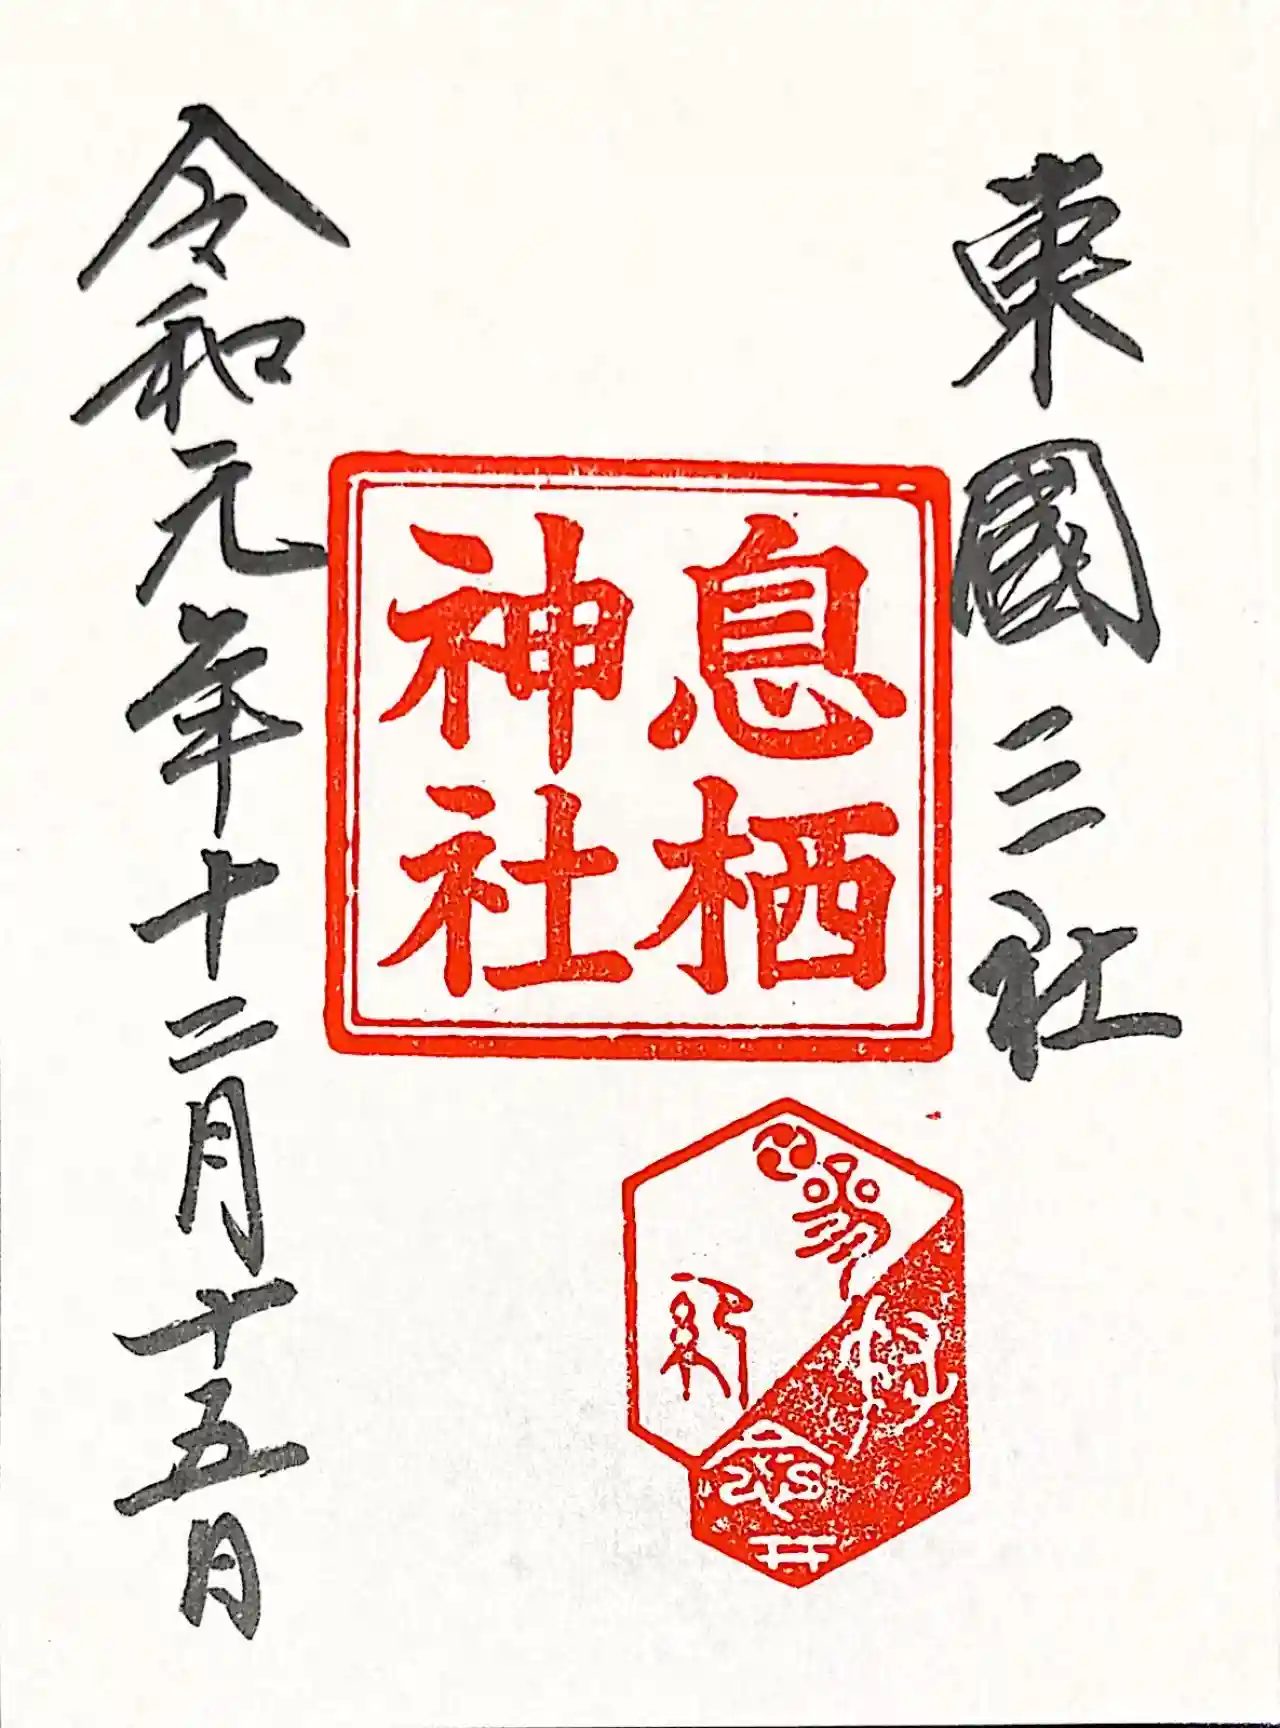 東國三社
息栖
神社
井
令和元年十二月十五日